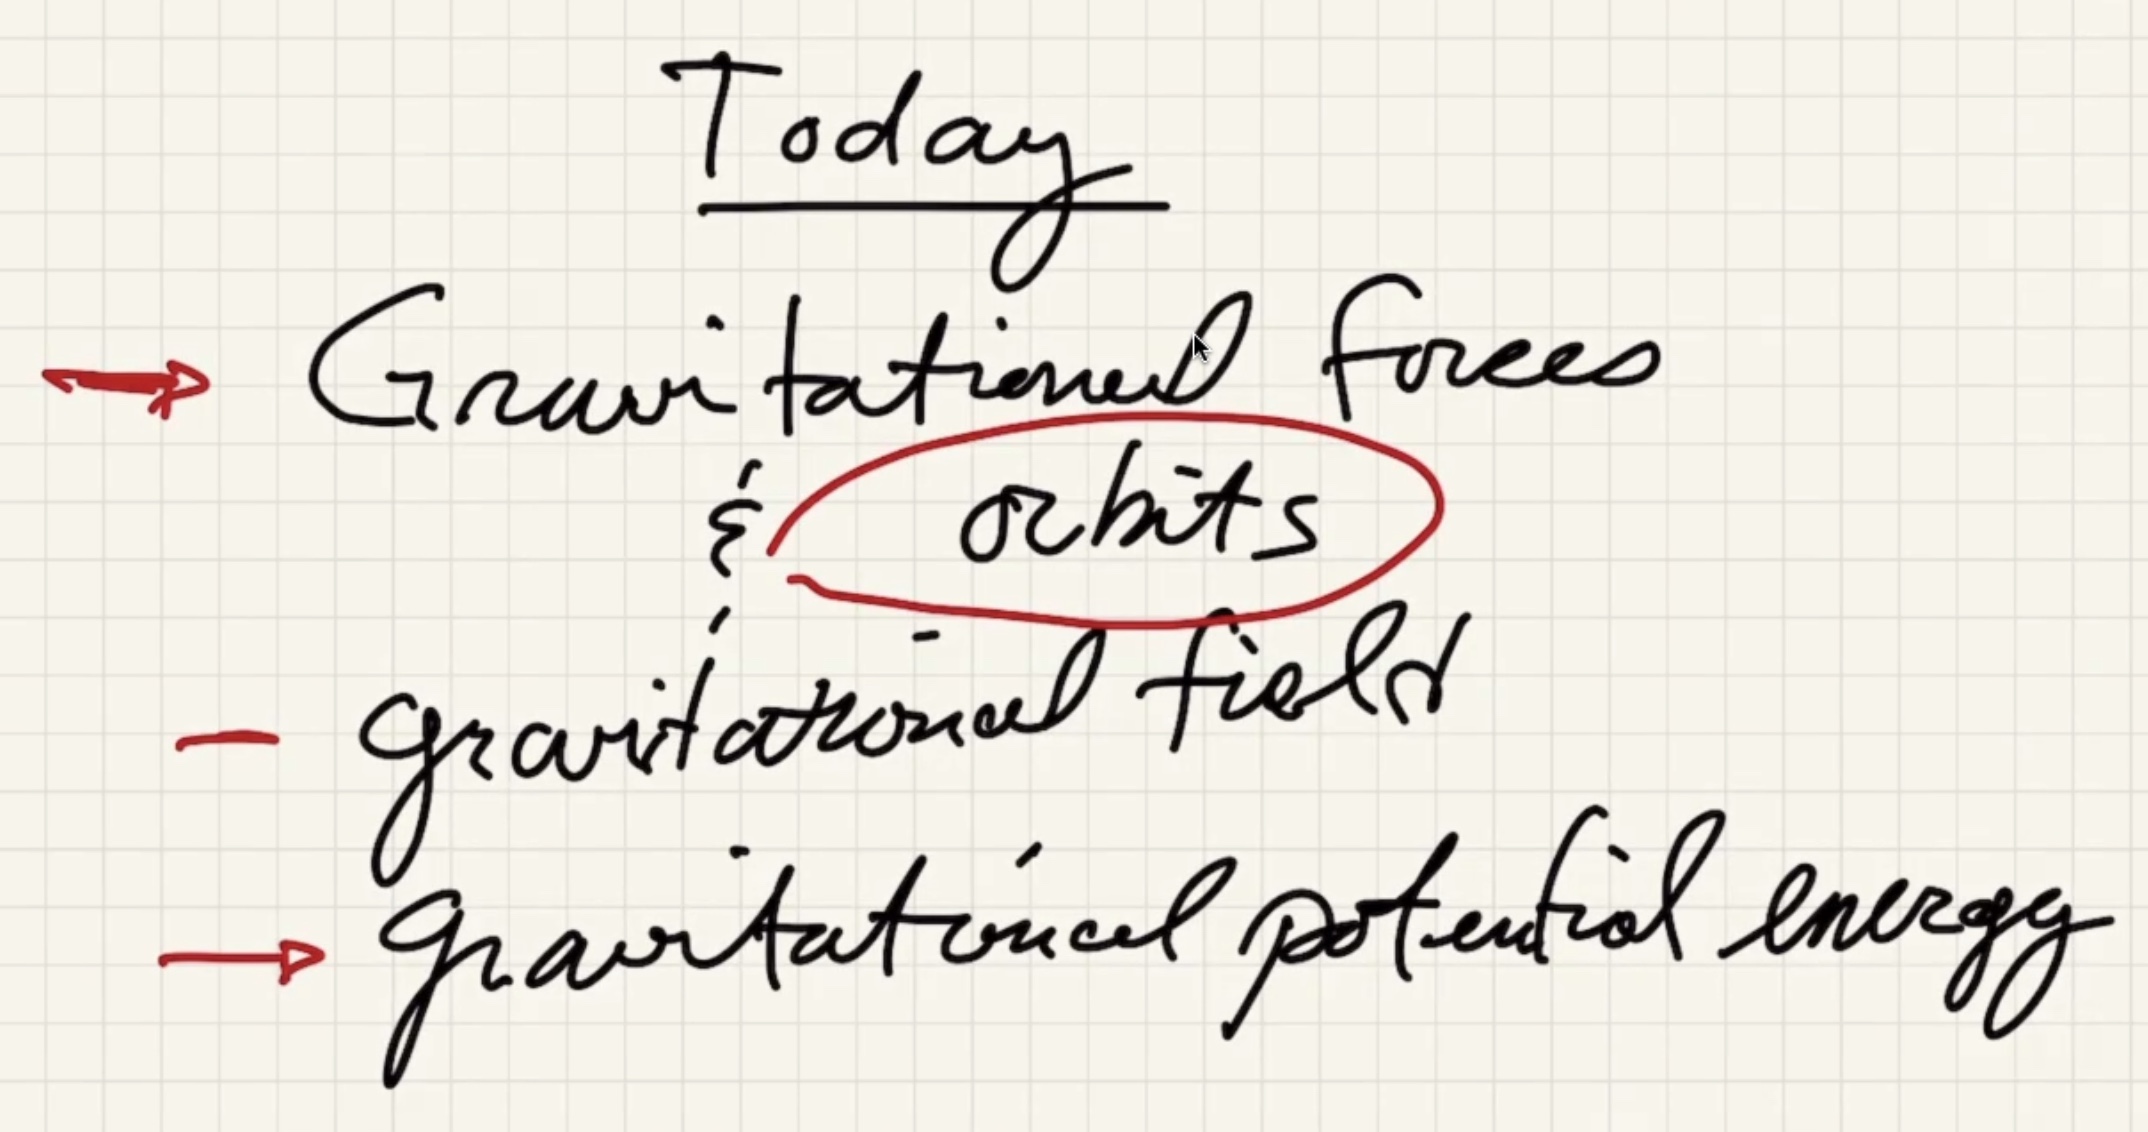 Today
→ Gravitational forces
& orbits
– gravitational field
→ gravitational potential energy